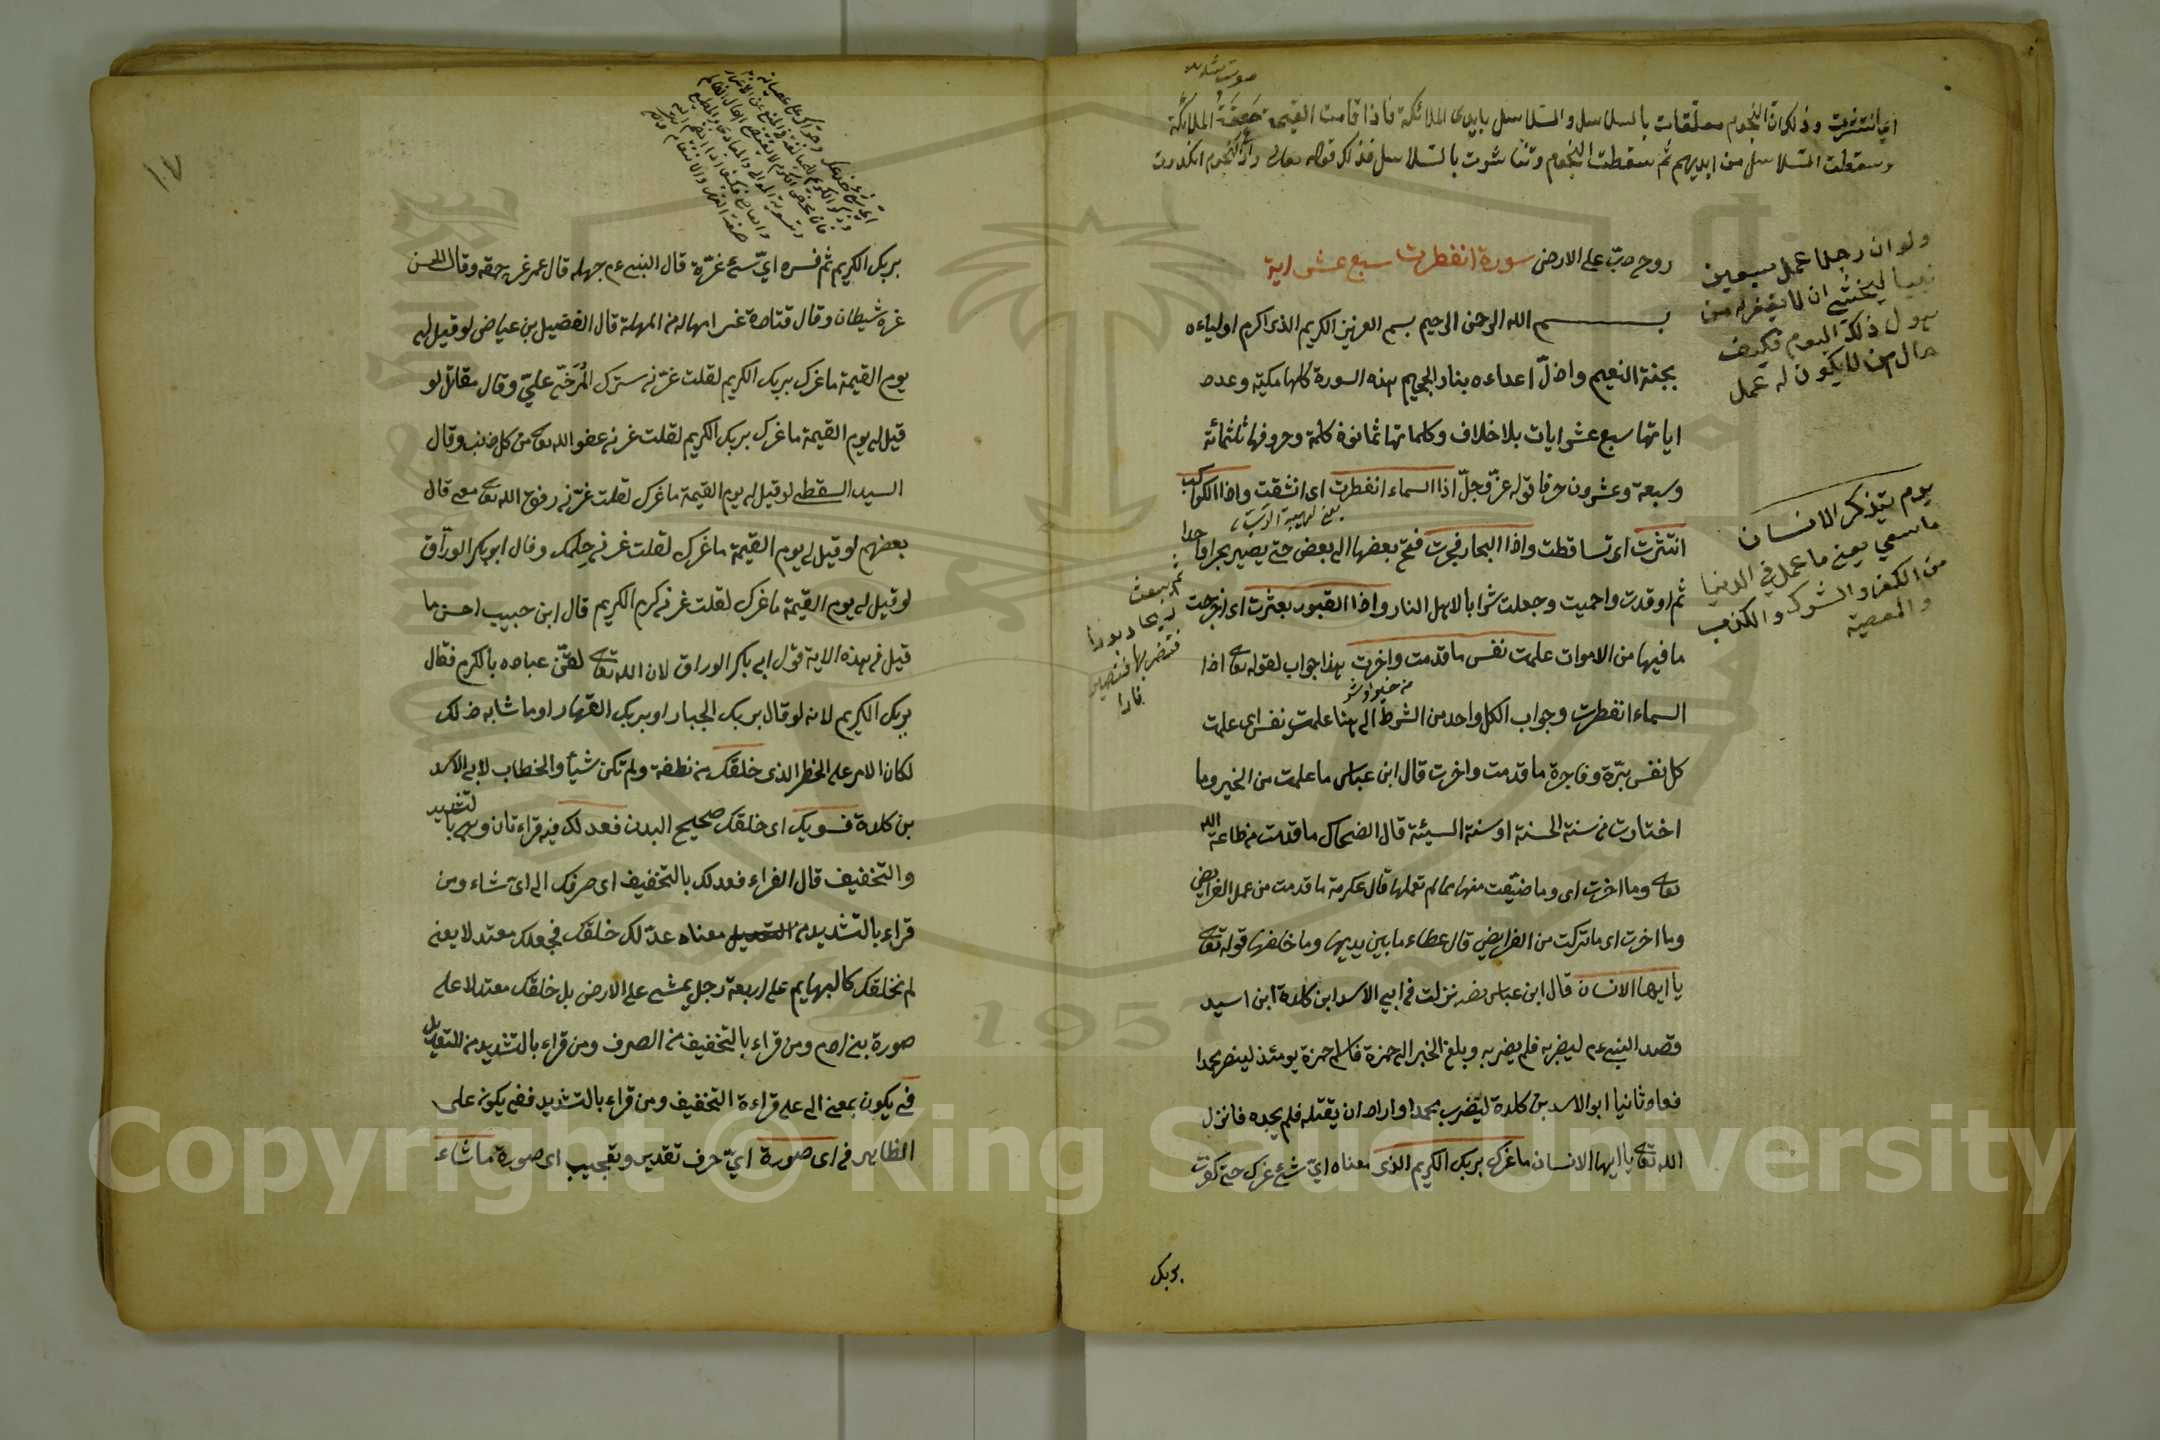 صوت شديد
اي انتثرت وذلك ان النجوم معلقات بالسلاسل والسلاسل بايدى الملائكة فاذا قامت القيمة صعقة الملائكة
وسقطت السلاسل من ايديهم ثم سقطت النجوم وتناثرت بالسلاسل فذلك قوله تعالى واذا النجوم انكدرت
روح دبّ على الارض سورة انفطرت سبع عشر اية
بسم الله الرحمن الرحيم بسم العزيز الكريم الذى اكرم اولياءه
بجنة النعيم واذلّ اعداءه بنار الجحيم هذه السورة كلها مكية وعدد
اياتها سبع عشر ايات بلا خلاف وكلماتها ثمانون كلمة وحروفها ثلثمائة
وسبعة وعشرون حرفا قوله عزّ وجلّ اذا السماء انفطرت اى انشقت واذا الكواكب
انتثرت اى تساقطت واذا البحار فجرت فتح بعضها الى بعض حتى يصير بحرا واحدا
ثم اوقدت واحميت وجعلت شرابا لاهل النار واذا القبور بعثرت اى اخرجت
ما فيها من الاموات علمت نفس ما قدمت واخرت هذا جواب لقوله تعالى اذا
من خير او شر
السماء انفطرت وجواب الكل واحد من الشرط الى هنا علمت نفس اى علمت
كل نفس برّة وفاجرة ما قدمت واخرت قال ابن عباس ما علمت من الخير وما
اختارت من سنة الحسنة او سنة السيئة قال الضحاك ما قدمت من طاعة الله
تعالى وما اخرت اى وما ضيّعت منها مما لم تعملها قال عكرمة ما قدمت من عمل الفرايض
وما اخرت اى ما تركت من الفرايض قال عطاء ما بين يديها وما خلفها قوله تعالى
يا ايها الانسان قال ابن عباس رضه نزلت فى ابى الاسد ابن كلدة ابن اسيد
قصد النبى عم ليضربه فلم يضربه وبلغ الخبر الى حمزة فاسلم حمزة يومئذ لينصر محمدا
فعاد ثانيا ابو الاسد بن كلدة ليضرب محمدا واراد ان يقتله فلم يجده فانزل
الله تعالى يا ايها الانسان ما غرك بربك الكريم الذى معناه اىّ شئ غرك حتى كفرت
بربك
ولو ان رجلا عمل سبعين
نبيا ليخشى ان لا يغفر له من
هول ذلك اليوم فكيف
حال من لا يكون له عمل
يوم يتذكر الانسان
ما سعى يعنى ما عمل في الدنيا
من الكفر والشرك والكذب
والمعصية
١٠٧
بربك الكريم ثم فسره اىّ شئ غرّة قال النبى عم جهله قال عمر غره حمقه وقال الحسن
غره شيطان وقال قتادة غره امهاله من المهلة قال الفضيل بن عياض لو قيل لى
يوم القيمة ما غرك بربك الكريم لقلت غرّنى سترك المُرَخّى علىّ وقال مقاتل لو
قيل لى يوم القيمة ما غرك بربك الكريم لقلت غرنى عفو الله تعالى من كل ذنب وقال
السيد السقطى لو قيل لى يوم القيمة ما غرك لقلت غرّنى رفق الله تعالى معى قال
بعضهم لو قيل لى يوم القيمة ما غرك لقلت غرنى حلمك وقال ابو بكر الورّاق
لو قيل لى يوم القيمة ما غرك لقلت غرنى كرم الكريم قال ابن حبيب احسن ما
قيل فى هذه الاية قول ابى بكر الوراق لان الله تعالى لقّن عباده بالكرم فقال
بربك الكريم لانه لو قال بربك الجبار او بربك القهار او ما شابه ذلك
لكان الامر على الخطر الذى خلقك من نطفة ولم تكن شيأ والخطاب لابى الاسد
بن كلدة فسويك اى خلقك صحيح البدن فعدلك فيه قراءتان وهى بالتشديد
والتخفيف قال الفراء فعدلك بالتخفيف اى صرفك الى اىّ شاء ومن
قراء بالتشديد من التعديل معناه عدّلك خلقك فجعلك معتدلا يعنى
لم نخلقك كالبهايم على اربعة رجل يمشى على الارض بل خلقك معتدلا على
صورة بنى ادم ومن قراء بالتخفيف من الصرف ومن قراء بالتشديد من التعديل
فى يكون بمعنى الى على قراءة التخفيف ومن قراء بالتشديد ففى يكون على
الظاهر فى اى صورة اىّ حرف تقدير وتعجيب اى صورة ما شاء
Copyright © King Saud University
1957